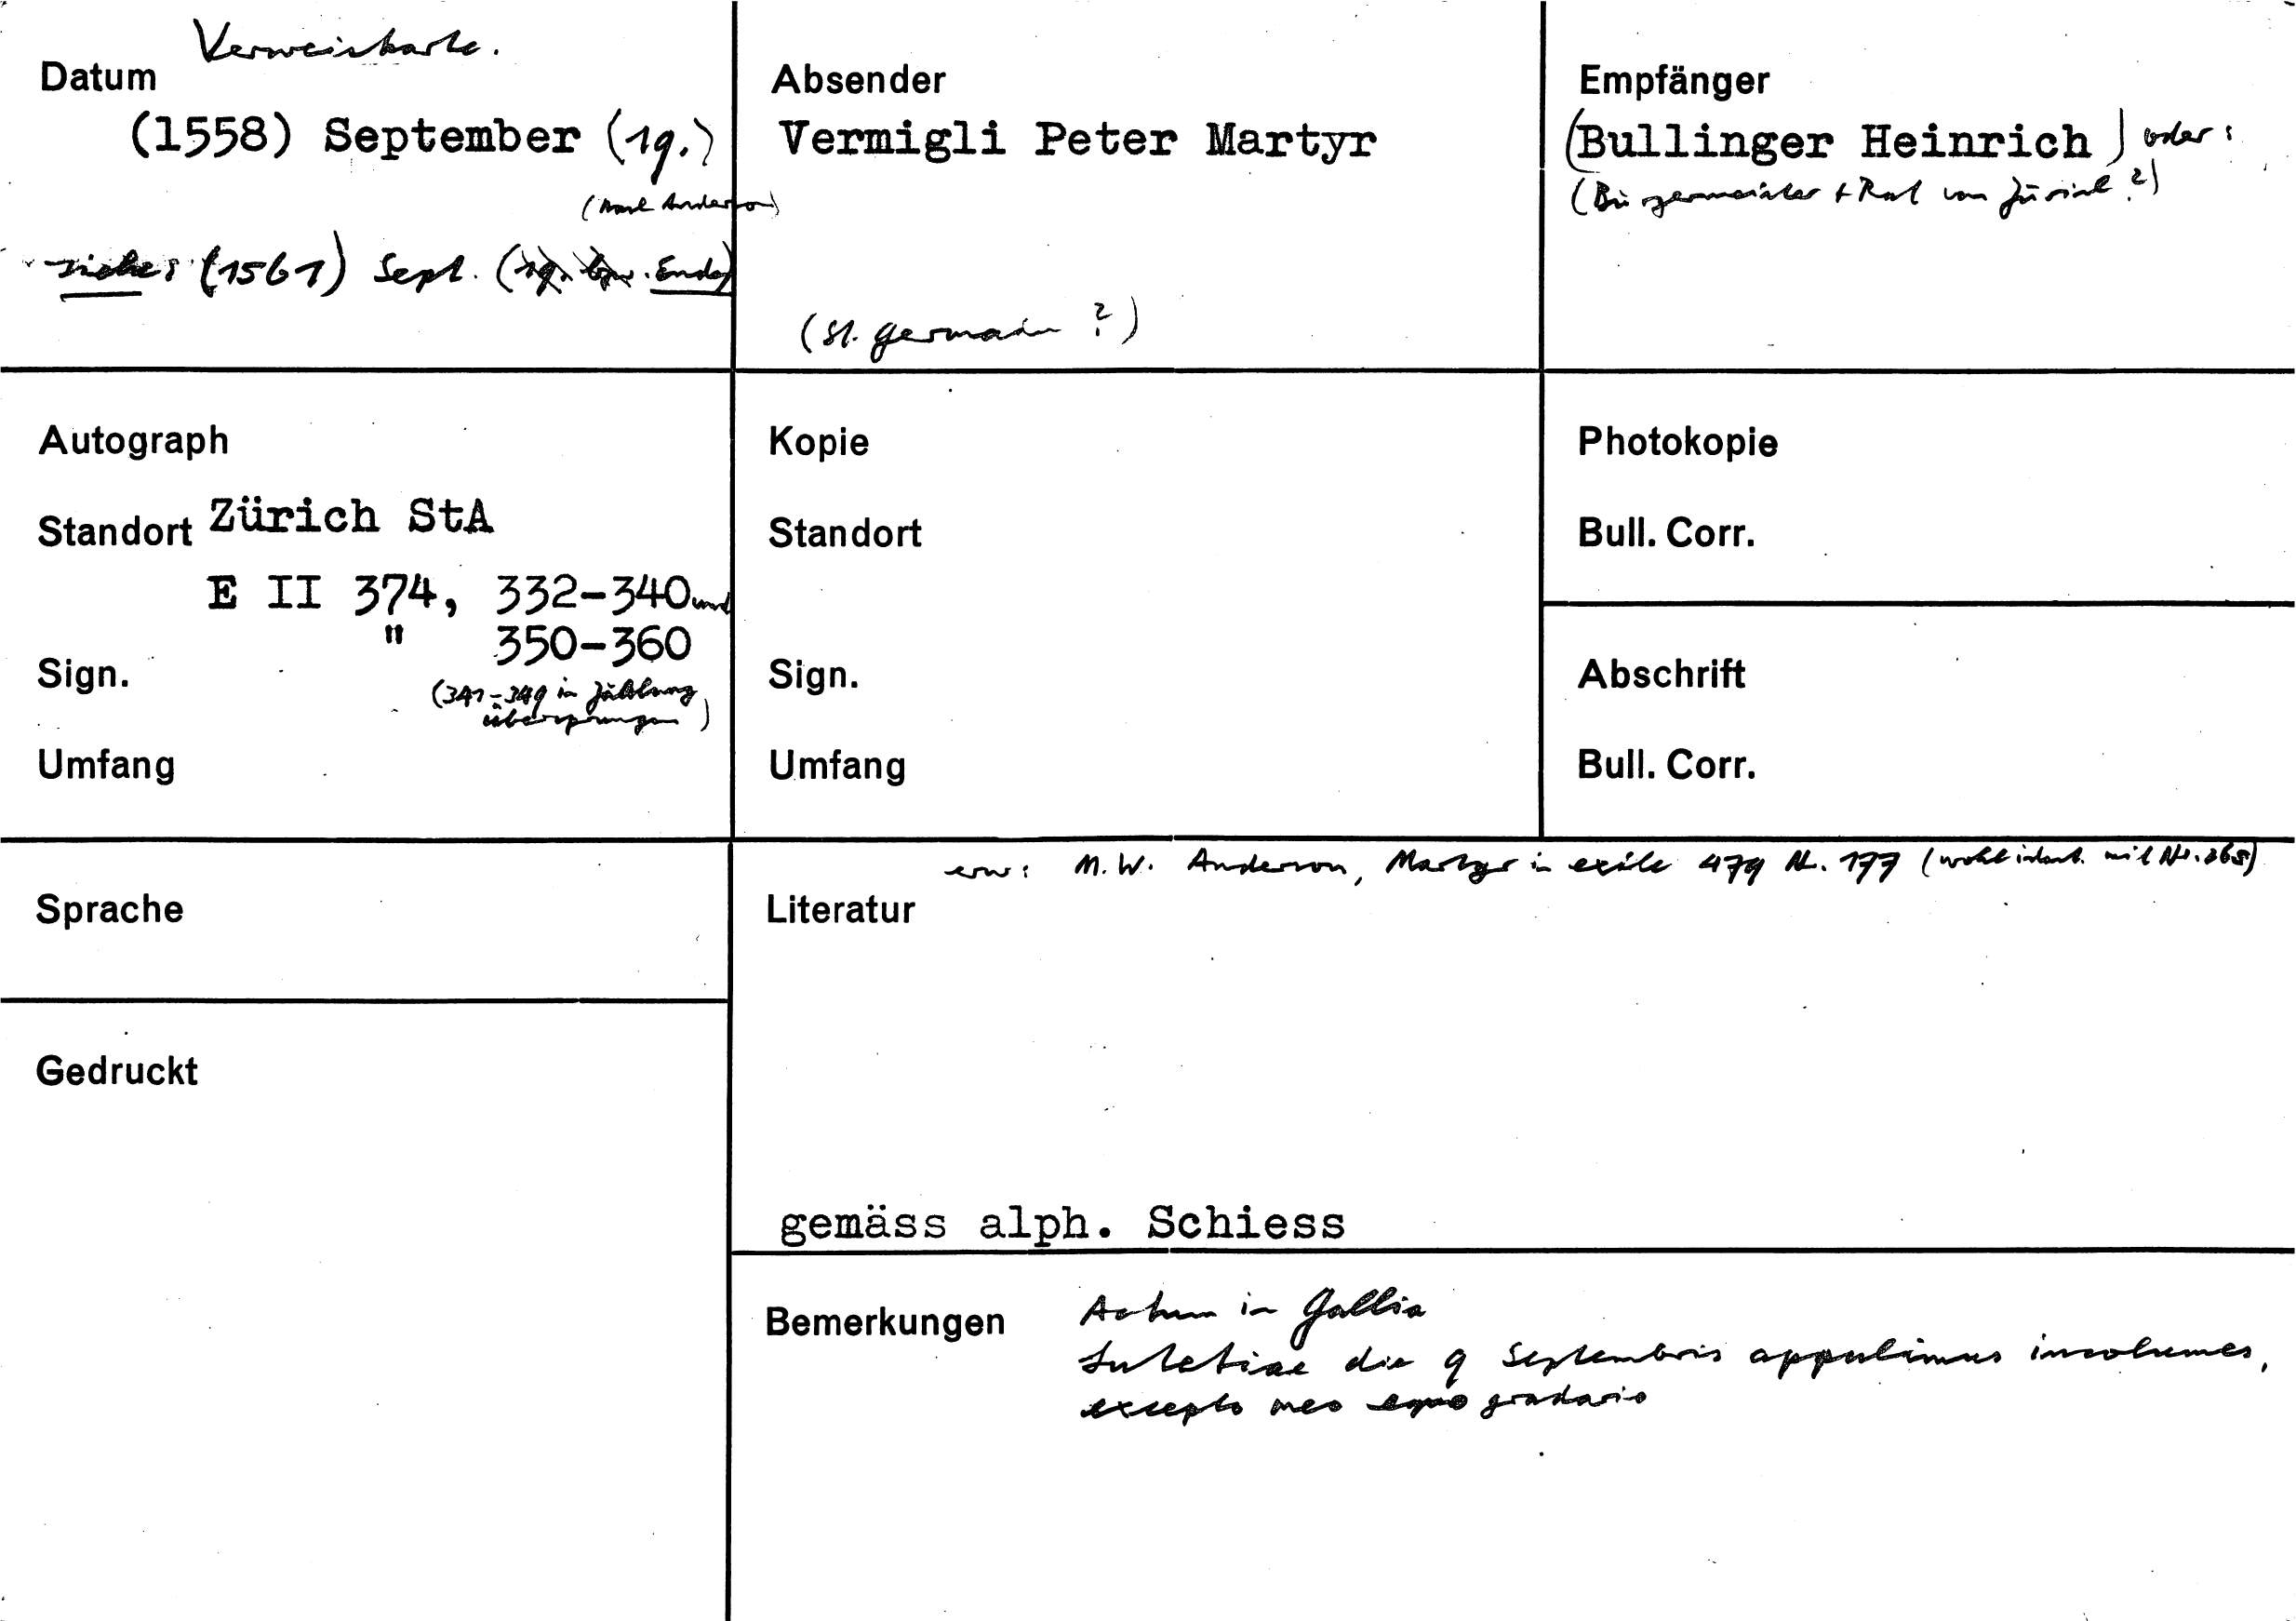 Verweiskarte.
Datum
(1558) September (19.)
(nach Anderson)
siehe: (1561) Sept. (19. bzw. Ende)
Absender
Vermigli Peter Martyr
(St. Germain ?)
Empfänger
(Bullinger Heinrich) oder:
(Bürgermeister + Rat von Zürich ?)
Autograph
Standort Zürich StA
E II 374, 332-340 und
" 350-360
Sign.
(341-349 in Zählung
übersprungen)
Umfang
Kopie
Standort
Sign.
Umfang
Photokopie
Bull. Corr.
Abschrift
Bull. Corr.
Sprache
Gedruckt
erw: M.W. Anderson, Martyr in exile 479 Nr. 177 (wohl ident. mit Nr. 265)
Literatur
gemäss alph. Schiess
Bemerkungen
Actum in Gallia
Lutetiae die 9 Septembris appulimus incolumes,
excepto meo equo gradario